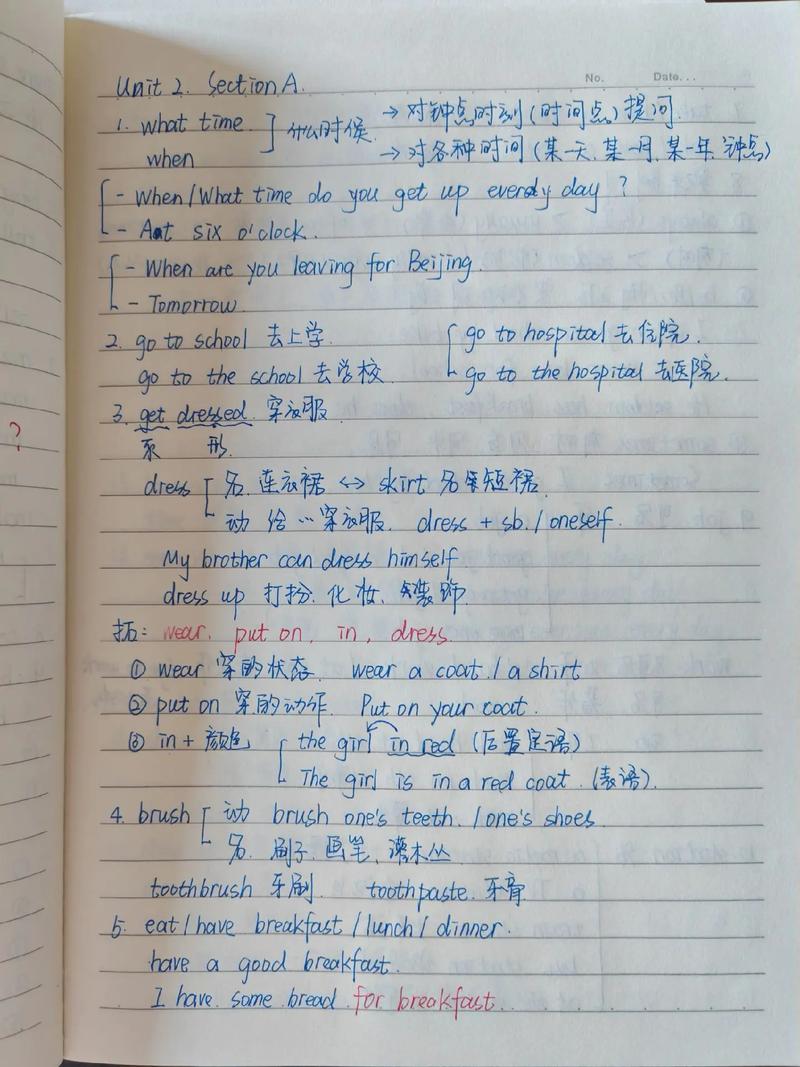 No. Date...
Unit 2. Section A.
1. what time
when
什么时候
→ 对钟点时刻(时间点)提问.
→ 对各种时间(某一天、某一月、某一年、钟点)
- When/What time do you get up everdy day ?
- At six o'clock.
- When are you leaving for Beijing.
- Tomorrow.
2. go to school 去上学. go to hospital 去住院.
go to the school 去学校 go to the hospital 去医院.
?
3. get dressed. 穿衣服
系 形
dress 名. 连衣裙 ↔ skirt 名 短裙.
动 给…穿衣服. dress + sb. / oneself.
My brother can dress himself
dress up 打扮、化妆、装饰.
拓: wear. put on. in, dress.
① wear 穿的状态. wear a coat. / a shirt
② put on 穿的动作. Put on your coat.
③ in + 颜色 the girl in red (后置定语)
The girl is in a red coat. (表语).
4. brush 动 brush one's teeth. / one's shoes.
名. 刷子、画笔、灌木丛
toothbrush 牙刷. toothpaste. 牙膏
5. eat / have breakfast / lunch / dinner.
have a good breakfast.
I have some bread for breakfast.